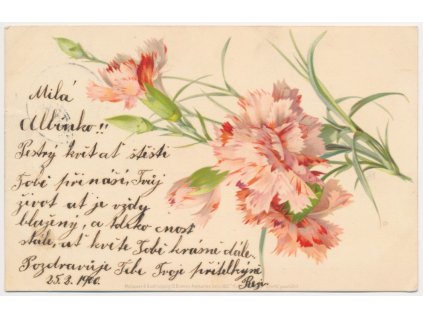 Milá
Albinko!!
Pestrý květ ať štěstí
Tobě přináší, Tvůj
život ať je vždy
blažený, a lidsko cnost
stále, ať květe Tobě krásně dále.
Pozdravuje Tebe Tvoje přítelkyně
25.2.1900.